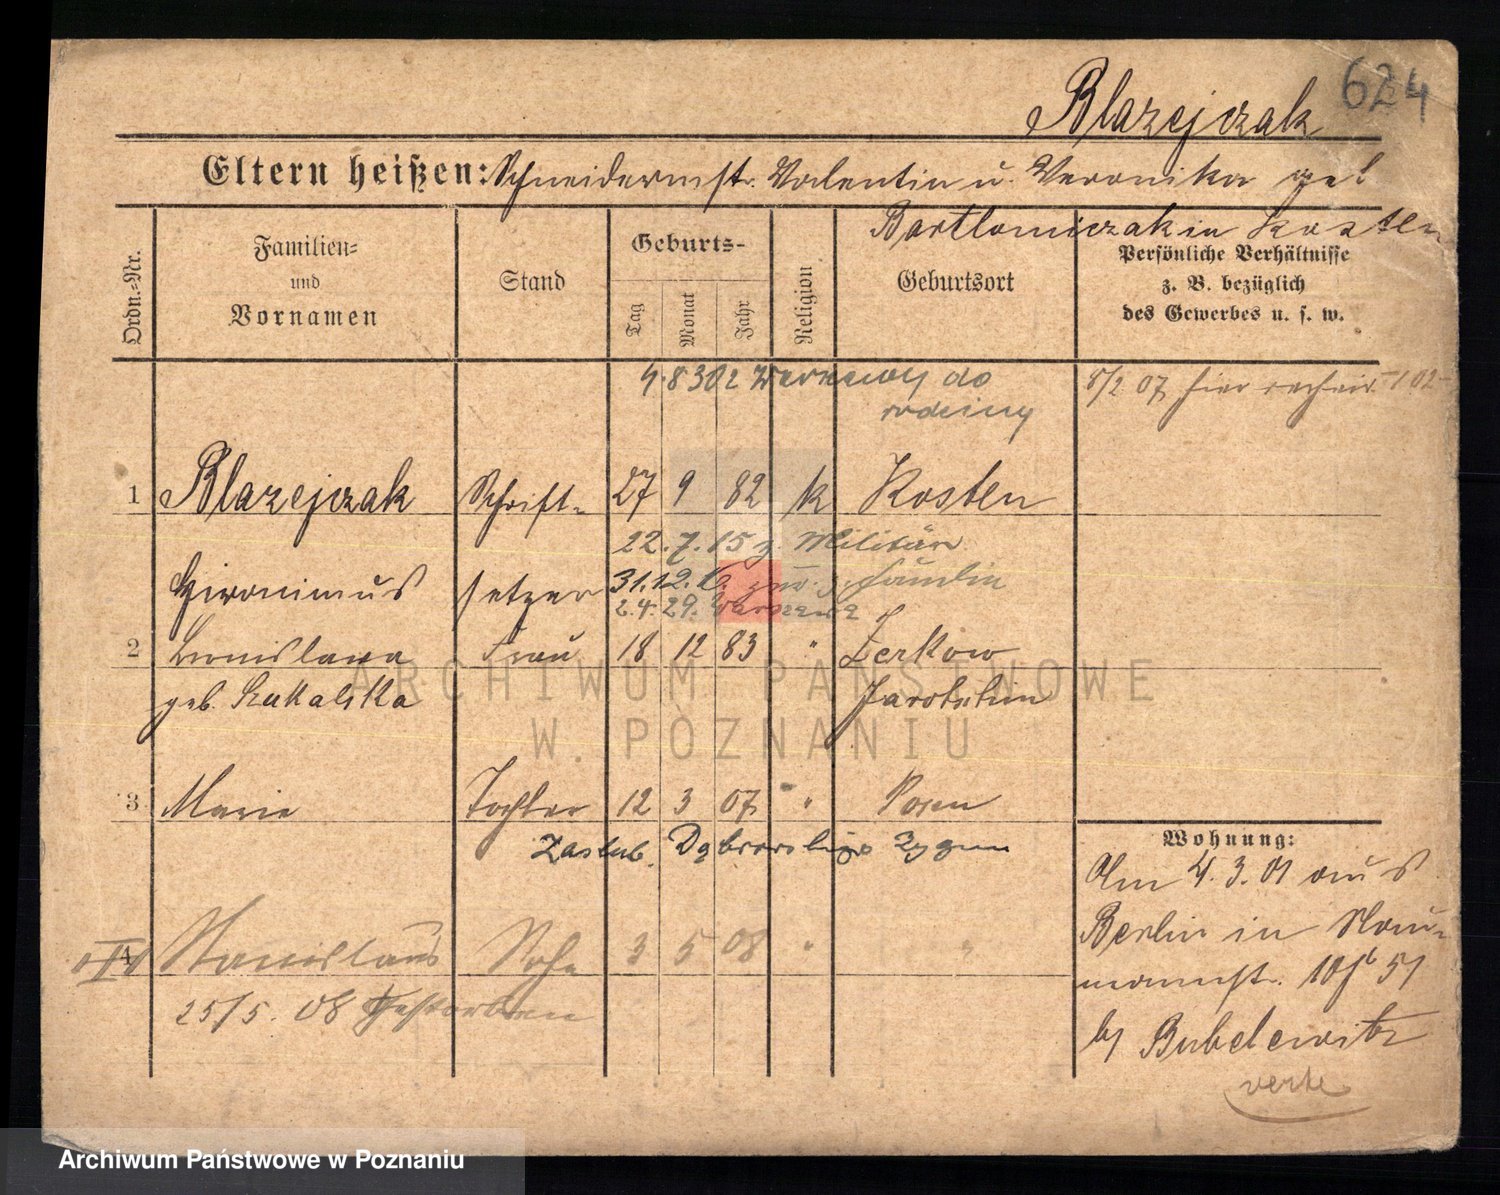 624
Blazejczak
Eltern heißen: Schneidermstr. Valentin u. Veronika geb
Bartlomiczak in Kosten
Ordn.-Nr.
Familien-
und
Vornamen
Stand
Geburts-
Tag
Monat
Jahr
Religion
Geburtsort
Persönliche Verhältnisse
z. B. bezüglich
des Gewerbes u. s. w.
do
rodziny
8/2 07 hier
1 Blazejczak Schrift- 27 9 82 k Kosten
22.7.15 z. Militär
Hironimus setzer 31.12. zur. z. Familie
2.4.29. Warszawa
2 Bronislawa Frau 18 12 83 " Zerkow
geb. Kukalska Jarotschin
ARCHIWUM PAŃSTWOWE
W POZNANIU
3 Marie Tochter 12 3 07 " Posen
Zaslub. Zygm
4 Stanislaus Sohn 3 5 08 " "
25/5. 08 Gestorben
Wohnung:
Am 4.3.01 aus
Berlin in Nau-
mannstr. 10
by
verte
Archiwum Państwowe w Poznaniu